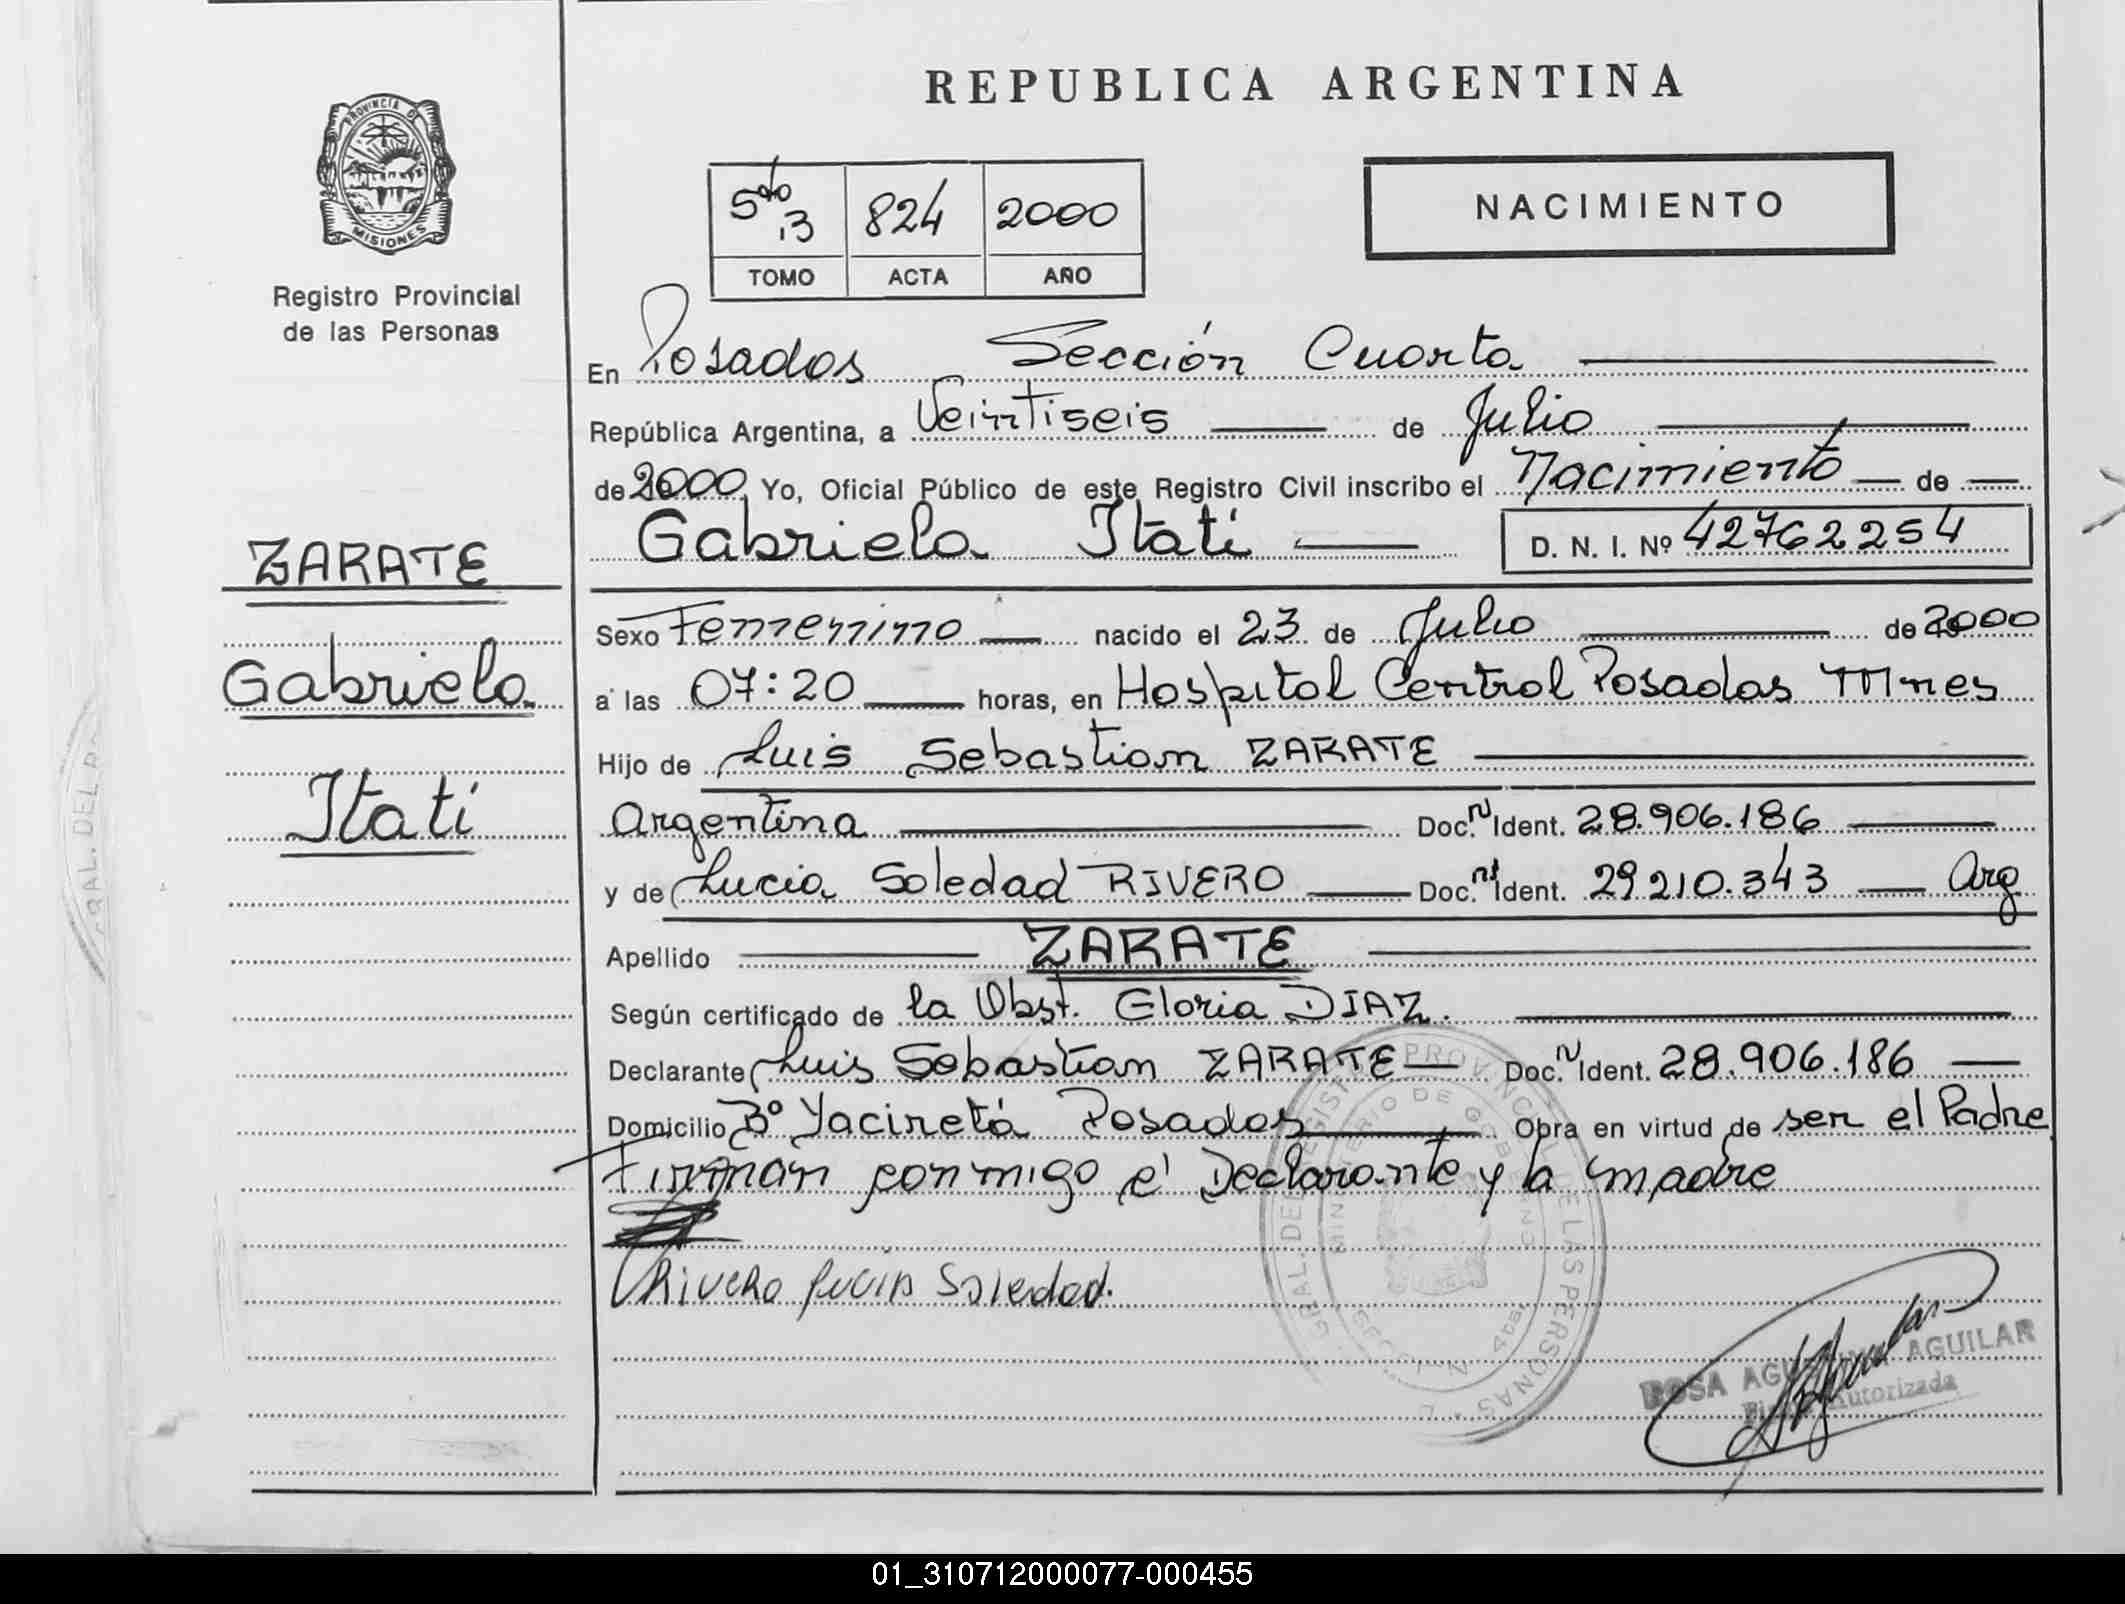 REPUBLICA ARGENTINA
PROVINCIA DE
MISIONES
Registro Provincial
de las Personas
5to 13 824 2000
TOMO ACTA AÑO
NACIMIENTO
En Posadas Sección Cuarta
República Argentina, a Veintiseis de Julio
de 2000 Yo, Oficial Público de este Registro Civil inscribo el Nacimiento de
Gabriela Itatí D. N. I. Nº 42762254
ZARATE
Gabriela
Itatí
Sexo Femenino nacido el 23 de Julio de 2000
a las 07:20 horas, en Hospital Central Posadas Mnes
Hijo de Luis Sebastian ZARATE
Argentina Doc. N Ident. 28.906.186
y de Lucia Soledad RIVERO Doc. N Ident. 29.210.343 Arg
Apellido ZARATE
Según certificado de la Obst. Gloria DIAZ.
Declarante Luis Sebastian ZARATE Doc. N Ident. 28.906.186
Domicilio Bº Yaciretá Posadas Obra en virtud de ser el Padre
Firman conmigo el Declarante y la madre
Rivero Lucia Soledad.
GRAL. DEL REGISTRO PROVINCIAL DE LAS PERSONAS
MINISTERIO DE GOBIERNO
ROSA AGUILAR
Firma Autorizada
01_310712000077-000455